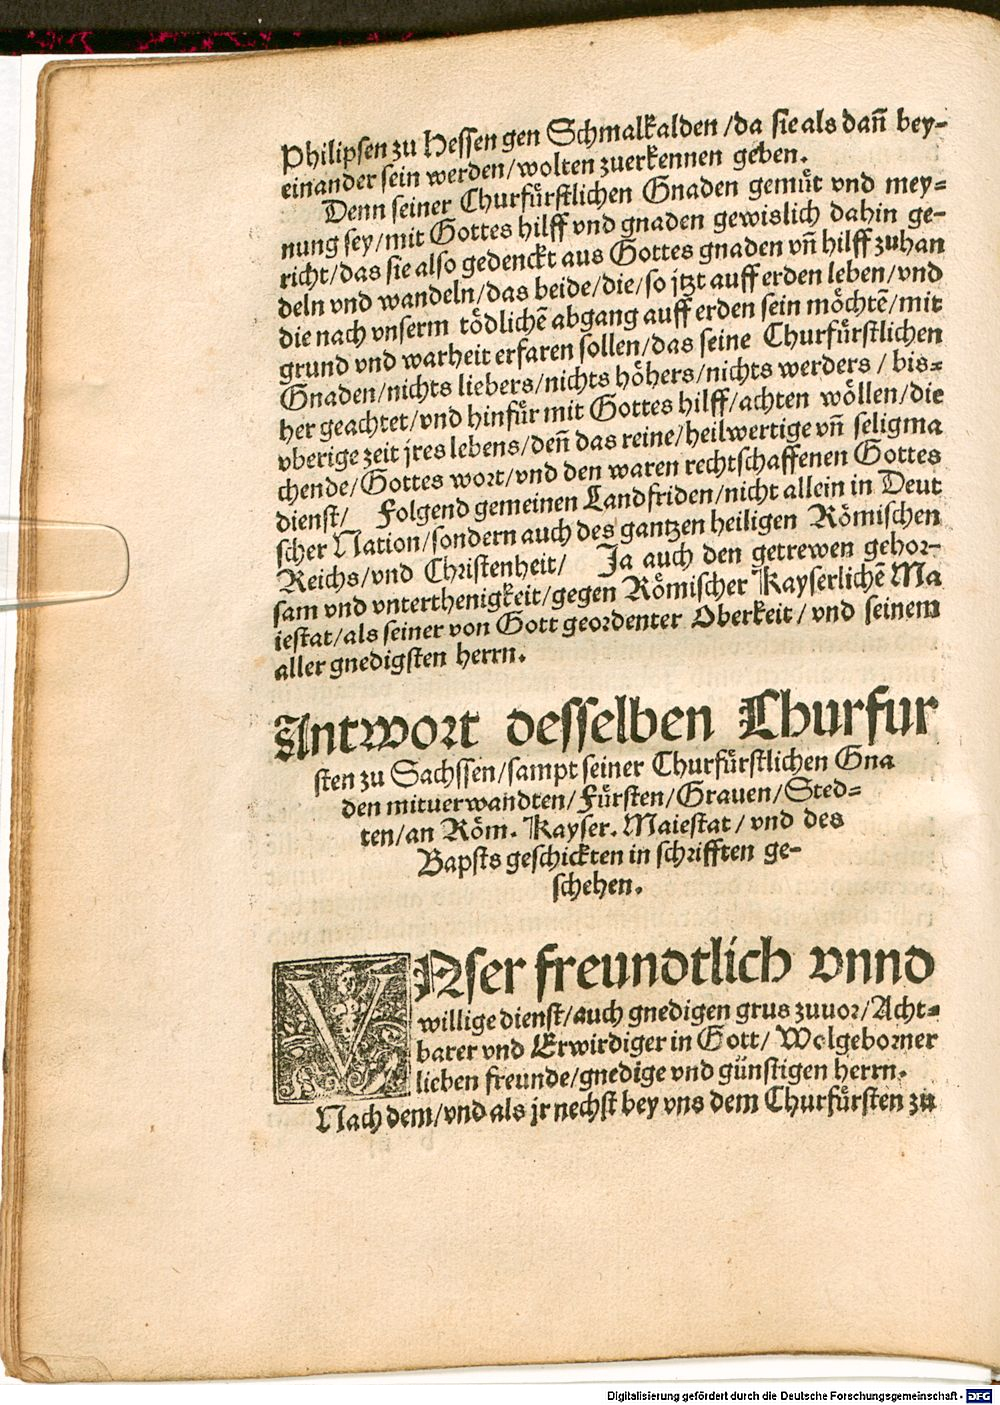 Philipsen zu Hessen gen Schmalkalden /da sie als dañ bey-
einander sein werden/wolten zuerkennen geben.
Denn seiner Churfürstlichen Gnaden gemüt vnd mey-
nung sey/mit Gottes hilff vnd gnaden gewislich dahin ge-
richt/das sie also gedenckt aus Gottes gnaden vñ hilff zuhan
deln vnd wandeln/das beide/die/so jtzt auff erden leben/vnd
die nach vnserm tödlichē abgang auff erden sein möchtē/mit
grund vnd warheit erfaren sollen/das seine Churfürstlichen
Gnaden/nichts liebers/nichts höhers/nichts werders / bis-
her geachtet/vnd hinfür mit Gottes hilff/achten wöllen/die
vberige zeit jres lebens/deñ das reine/heilwertige vñ seligma
chende/Gottes wort/vnd den waren rechtschaffenen Gottes
dienst/ Folgend gemeinen Landfriden/nicht allein in Deut
scher Nation/sondern auch des gantzen heiligen Römischen
Reichs/vnd Christenheit/ Ja auch den getrewen gehor-
sam vnd vnterthenigkeit/gegen Römischer Kayserlichē Ma
iestat/als seiner von Gott geordenter Oberkeit / vnd seinem
aller gnedigsten herrn.
Antwort desselben Churfur
sten zu Sachssen/sampt seiner Churfürstlichen Gna
den mituerwandten/Fürsten/Grauen/Sted-
ten/an Röm. Kayser. Maiestat / vnd des
Bapsts geschickten in schrifften ge-
schehen.
VNser freundtlich vnnd
willige dienst/auch gnedigen grus zuuor/Acht-
barer vnd Erwirdiger in Gott/ Wolgeborner
lieben freunde/gnedige vnd günstigen herrn.
Nach dem/vnd als jr nechst bey vns dem Churfürsten zu
Digitalisierung gefördert durch die Deutsche Forschungsgemeinschaft - DFG